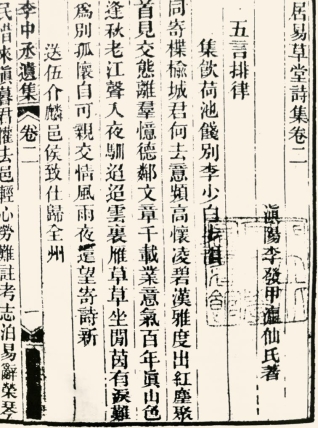 居易草堂詩集卷二
滇陽李發甲瀛仙氏著
五言排律
集飲荷池餞別李少白
同寄楪榆城君何去意頻高懷凌碧漢雅度出紅塵聚
首見交態離羣憶德鄰文章千載業意氣百年眞山色
逢秋老江聲入夜馴迢迢雲裏雁草草坐閒茵有淚難
爲別孤懷自可親交情風雨夜還望寄詩新
送伍介麟邑侯致仕歸全州
李中丞遺集
卷二
一
民惜來滇暮君權去邑輕心勞難註考志泊易辭榮琴